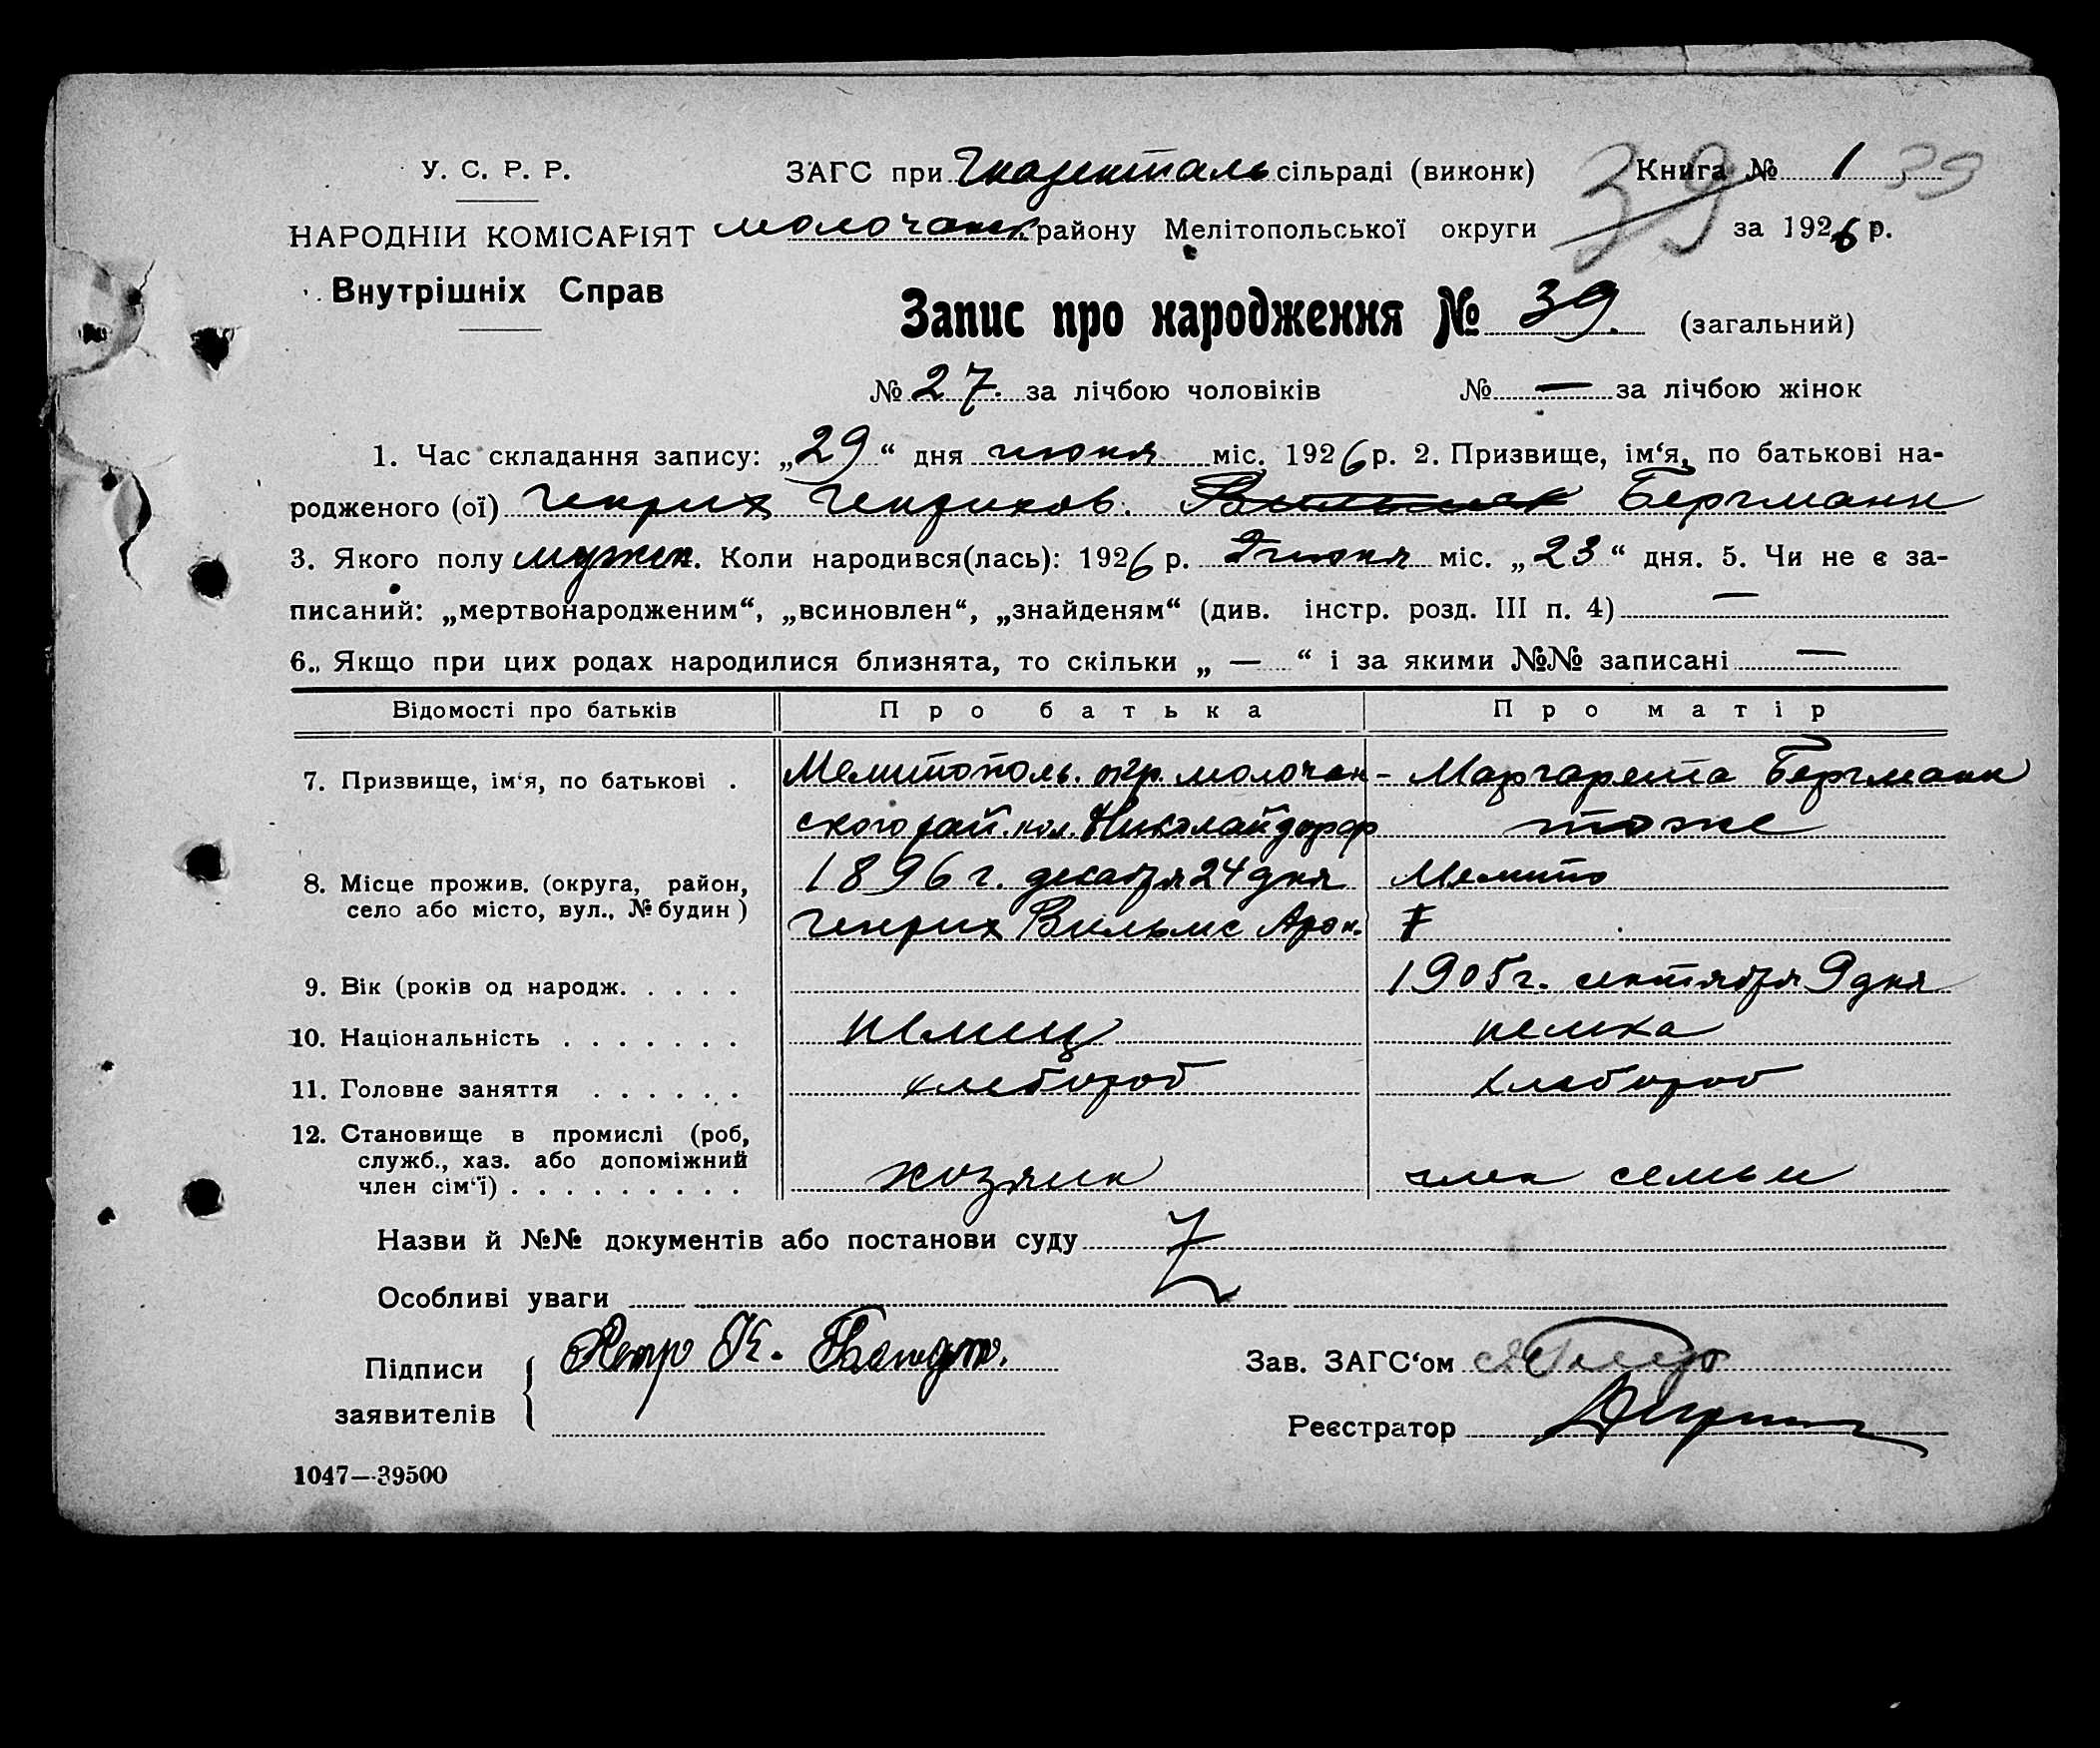 У. С. Р. Р.
НАРОДНІЙ КОМІСАРІЯТ
Внутрішніх Справ
ЗАГС при Гнаденталь сільраді (виконк) Книга № 1 39
Молочанск. району Мелітопольської округи 39 за 1926 р.
Запис про народження № 39. (загальний)
№ 27. за лічбою чоловіків № — за лічбою жінок
1. Час складання запису: „29“ дня июня міс. 1926 р. 2. Призвище, ім‘я, по батькові на-
родженого (ої) Генрих Генрихов. Бергманн
3. Якого полу мужск. Коли народився(лась): 1926 р. июня міс. „23“ дня. 5. Чи не є за-
писаний: „мертвонародженим“, „всиновлен“, „знайденям“ (див. інстр. розд. III п. 4) —
6. Якщо при цих родах народилися близнята, то скільки „ — “ і за якими №№ записані —
Відомості про батьків Про батька Про матір
7. Призвище, ім‘я, по батькові . Мелитополь. окр. молочан- Маргарета Бергманн
ского рай. кол. Николайдорф тоже
8. Місце прожив. (округа, район, 1896 г. декабря 24 дня Мелито
село або місто, вул., № будин) Генрих Вильмс Арон.
9. Вік (років од народж. . . . . 1905 г. сентября 9 дня
10. Національність . . . . . . . немец немка
11. Головне заняття . . . . . . хлебороб хлебороб
12. Становище в промислі (роб,
служб., хаз. або допоміжний
член сім‘ї) . . . . . . . . . хозяин член семьи
Назви й №№ документів або постанови суду
Особливі уваги
Підписи
заявителів
Петр К.
Зав. ЗАГС‘ом
Реєстратор
1047—39500